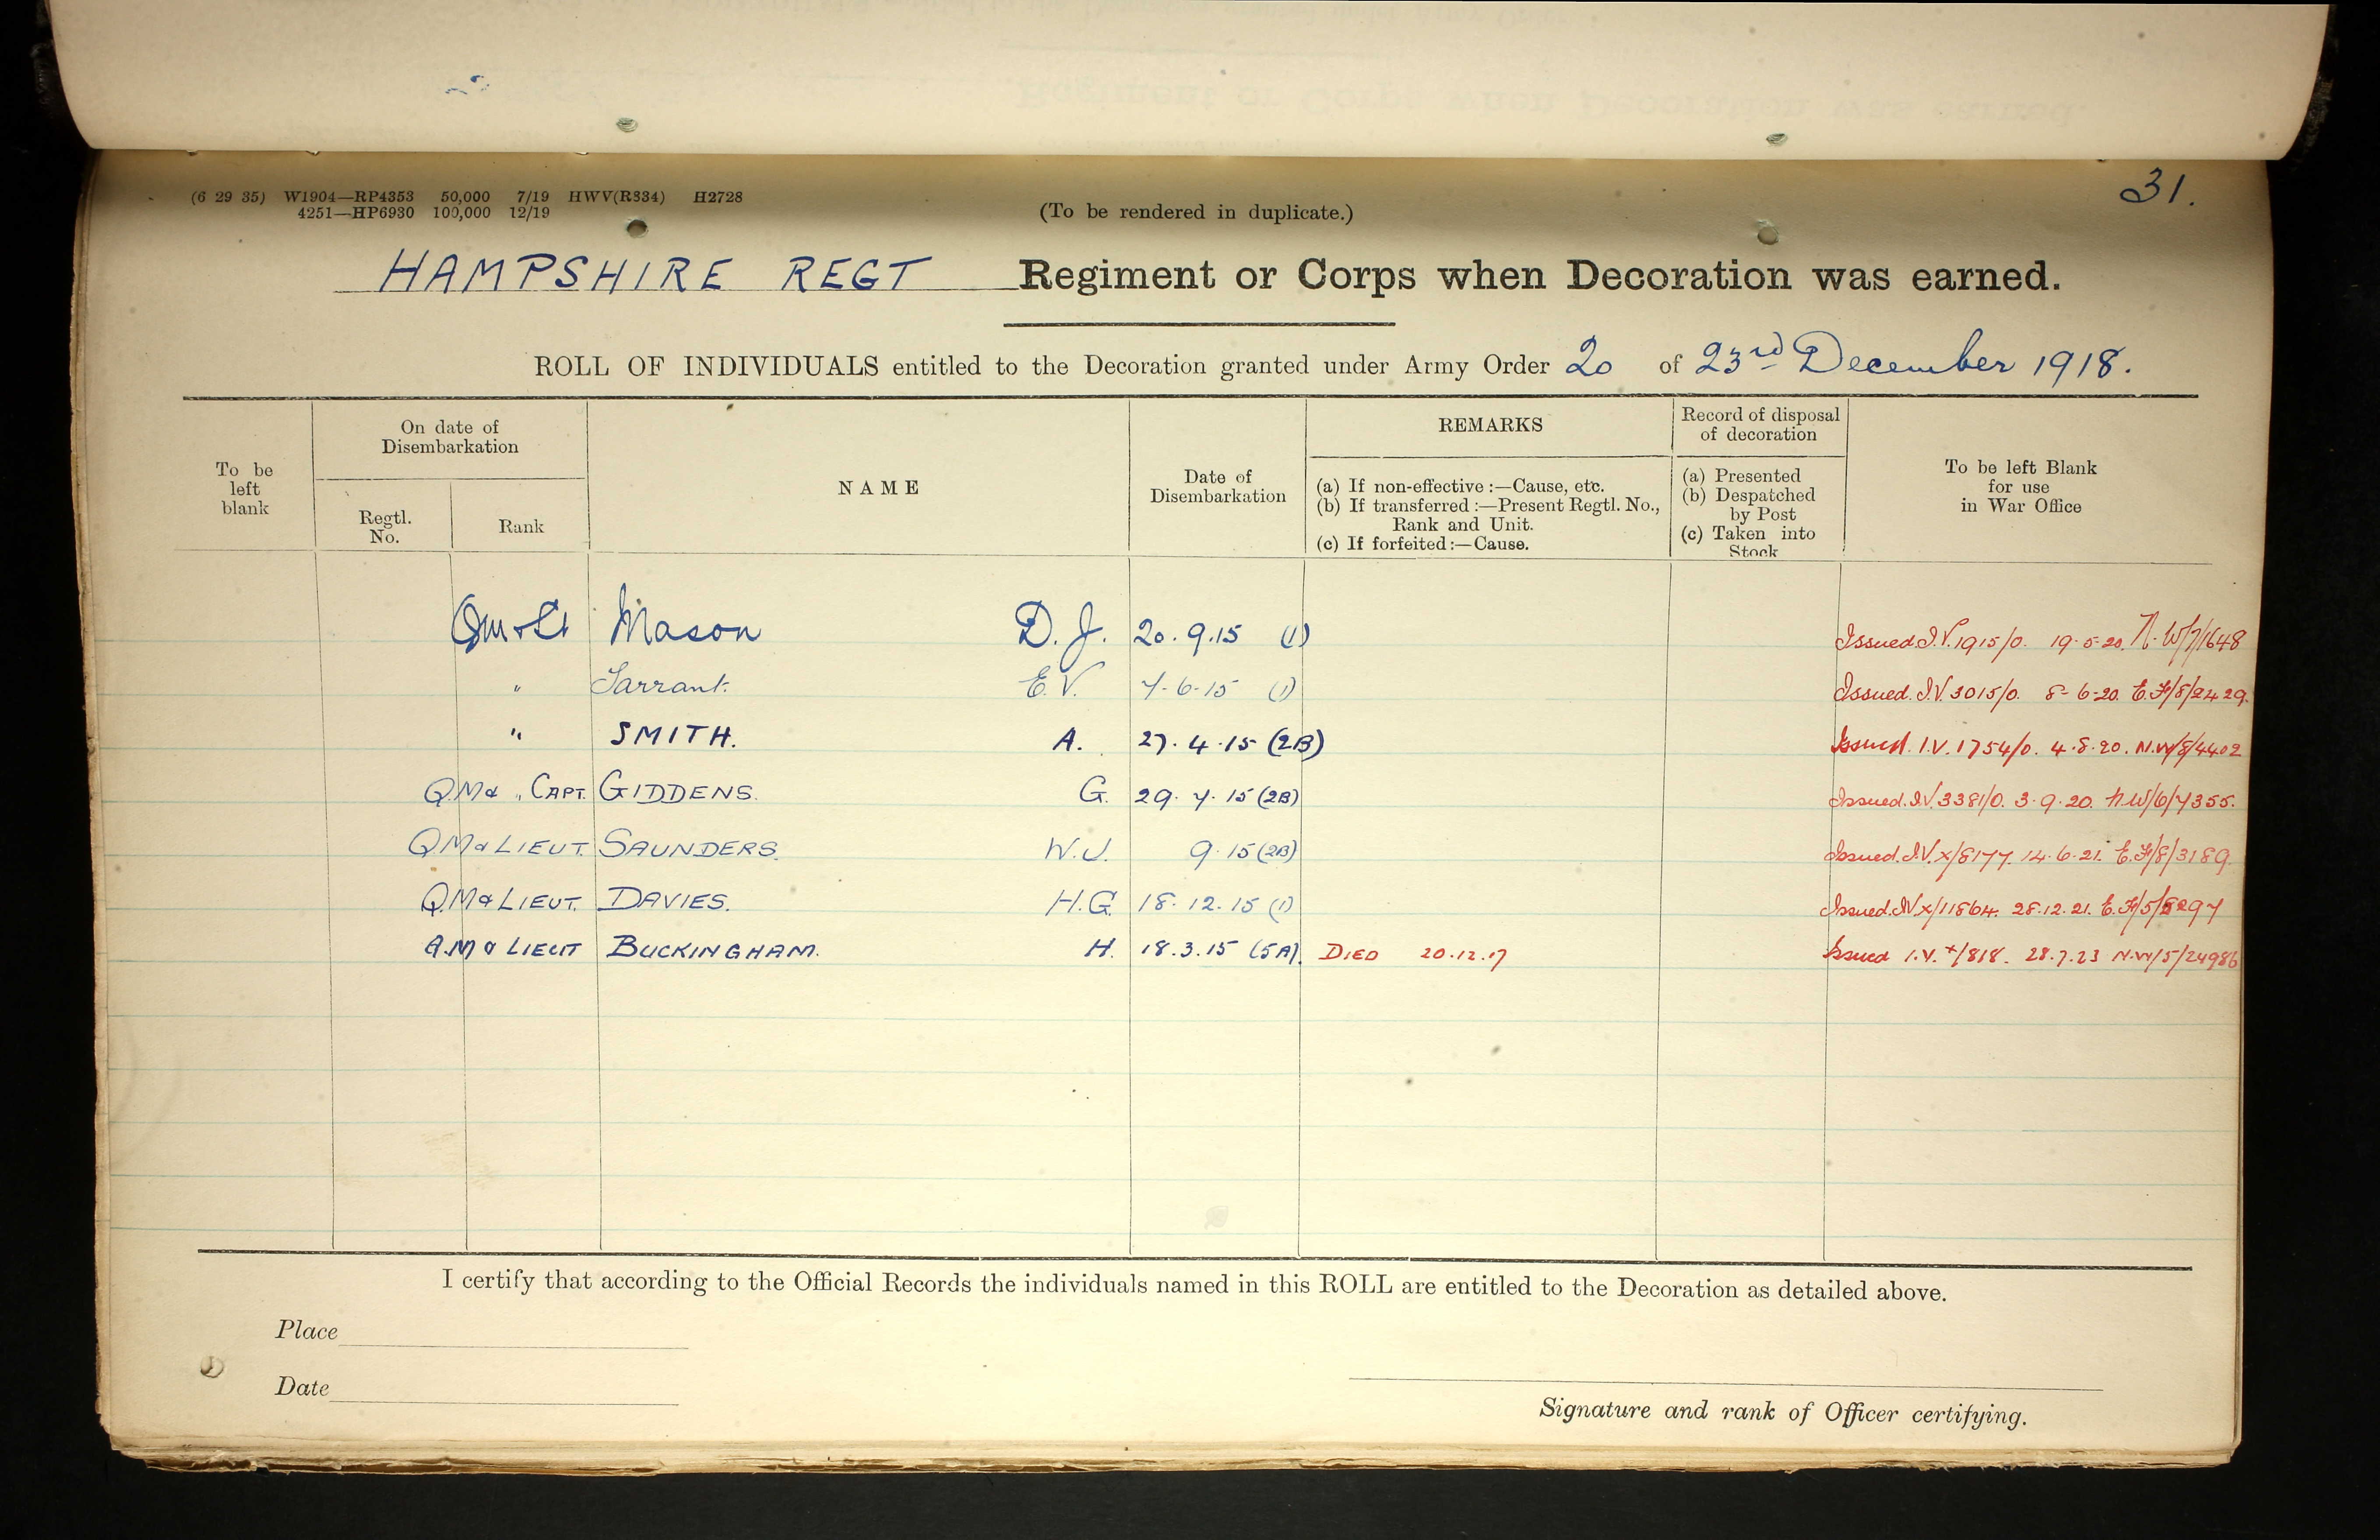 31.
(6 29 35) W1904—RP4353 50,000 7/19 HWV(R334) H2728
4251—HP6930 100,000 12/19
(To be rendered in duplicate.)
HAMPSHIRE REGT Regiment or Corps when Decoration was earned.
ROLL OF INDIVIDUALS entitled to the Decoration granted under Army Order 20 of 23rd December 1918.
To be left blank
On date of Disembarkation
Regtl. No.
Rank
NAME
Date of Disembarkation
REMARKS
(a) If non-effective :—Cause, etc.
(b) If transferred :—Present Regtl. No., Rank and Unit.
(c) If forfeited :—Cause.
Record of disposal of decoration
(a) Presented
(b) Despatched by Post
(c) Taken into Stock
To be left Blank for use in War Office
Qm & Lt Mason D. J. 20.9.15 (1) Issued I.V. 1915/0. 19-5-20. N.W/7/1648
" Tarrant. E.V. 7-6-15 (1) Issued. I.V. 3015/0. 8-6-20. E.F/8/2429.
" SMITH. A. 27.4.15 (2B) Issued. I.V. 1754/0. 4.8.20. N.W/8/4402
QM & " CAPT. GIDDENS. G. 29.7.15 (2B) Issued. I.V. 3381/0. 3.9.20. N.W/6/7355.
Q.M & LIEUT. SAUNDERS. W.J. 9.15 (2B) Issued. I.V.X/8177. 14.6.21. E.F/8/3189.
Q.M & LIEUT. DAVIES. H.G. 18.12.15 (1) Issued. IV X/11864. 28.12.21. E.F/5/8297
Q.M & LIEUT BUCKINGHAM. H. 18.3.15 (5A). DIED 20.12.17 Issued I.V. X/818. 28.7.23 N.W/5/24986
I certify that according to the Official Records the individuals named in this ROLL are entitled to the Decoration as detailed above.
Place
Date
Signature and rank of Officer certifying.